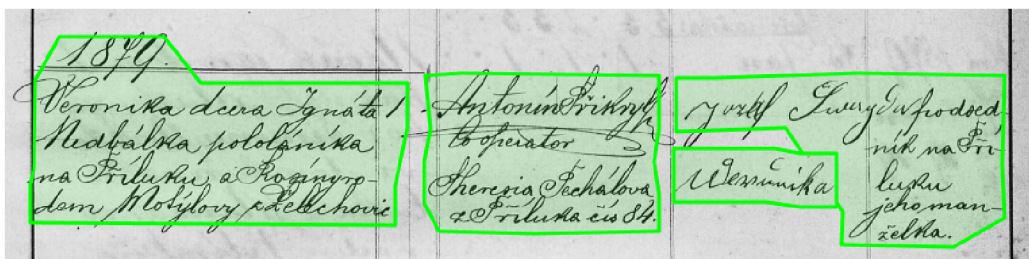 1879.
Veronika dcera Ignáta
Nedbálka pololáníka
na Příluku a Rozíny ro-
dem Motýlovy z Želechovic
Antonín Přikryl
Cooperator
Theresia Pechálova
z Příluka čís 84.
Jozef podsed-
ník na Pří-
luku
jeho man-
želka.
Weronika